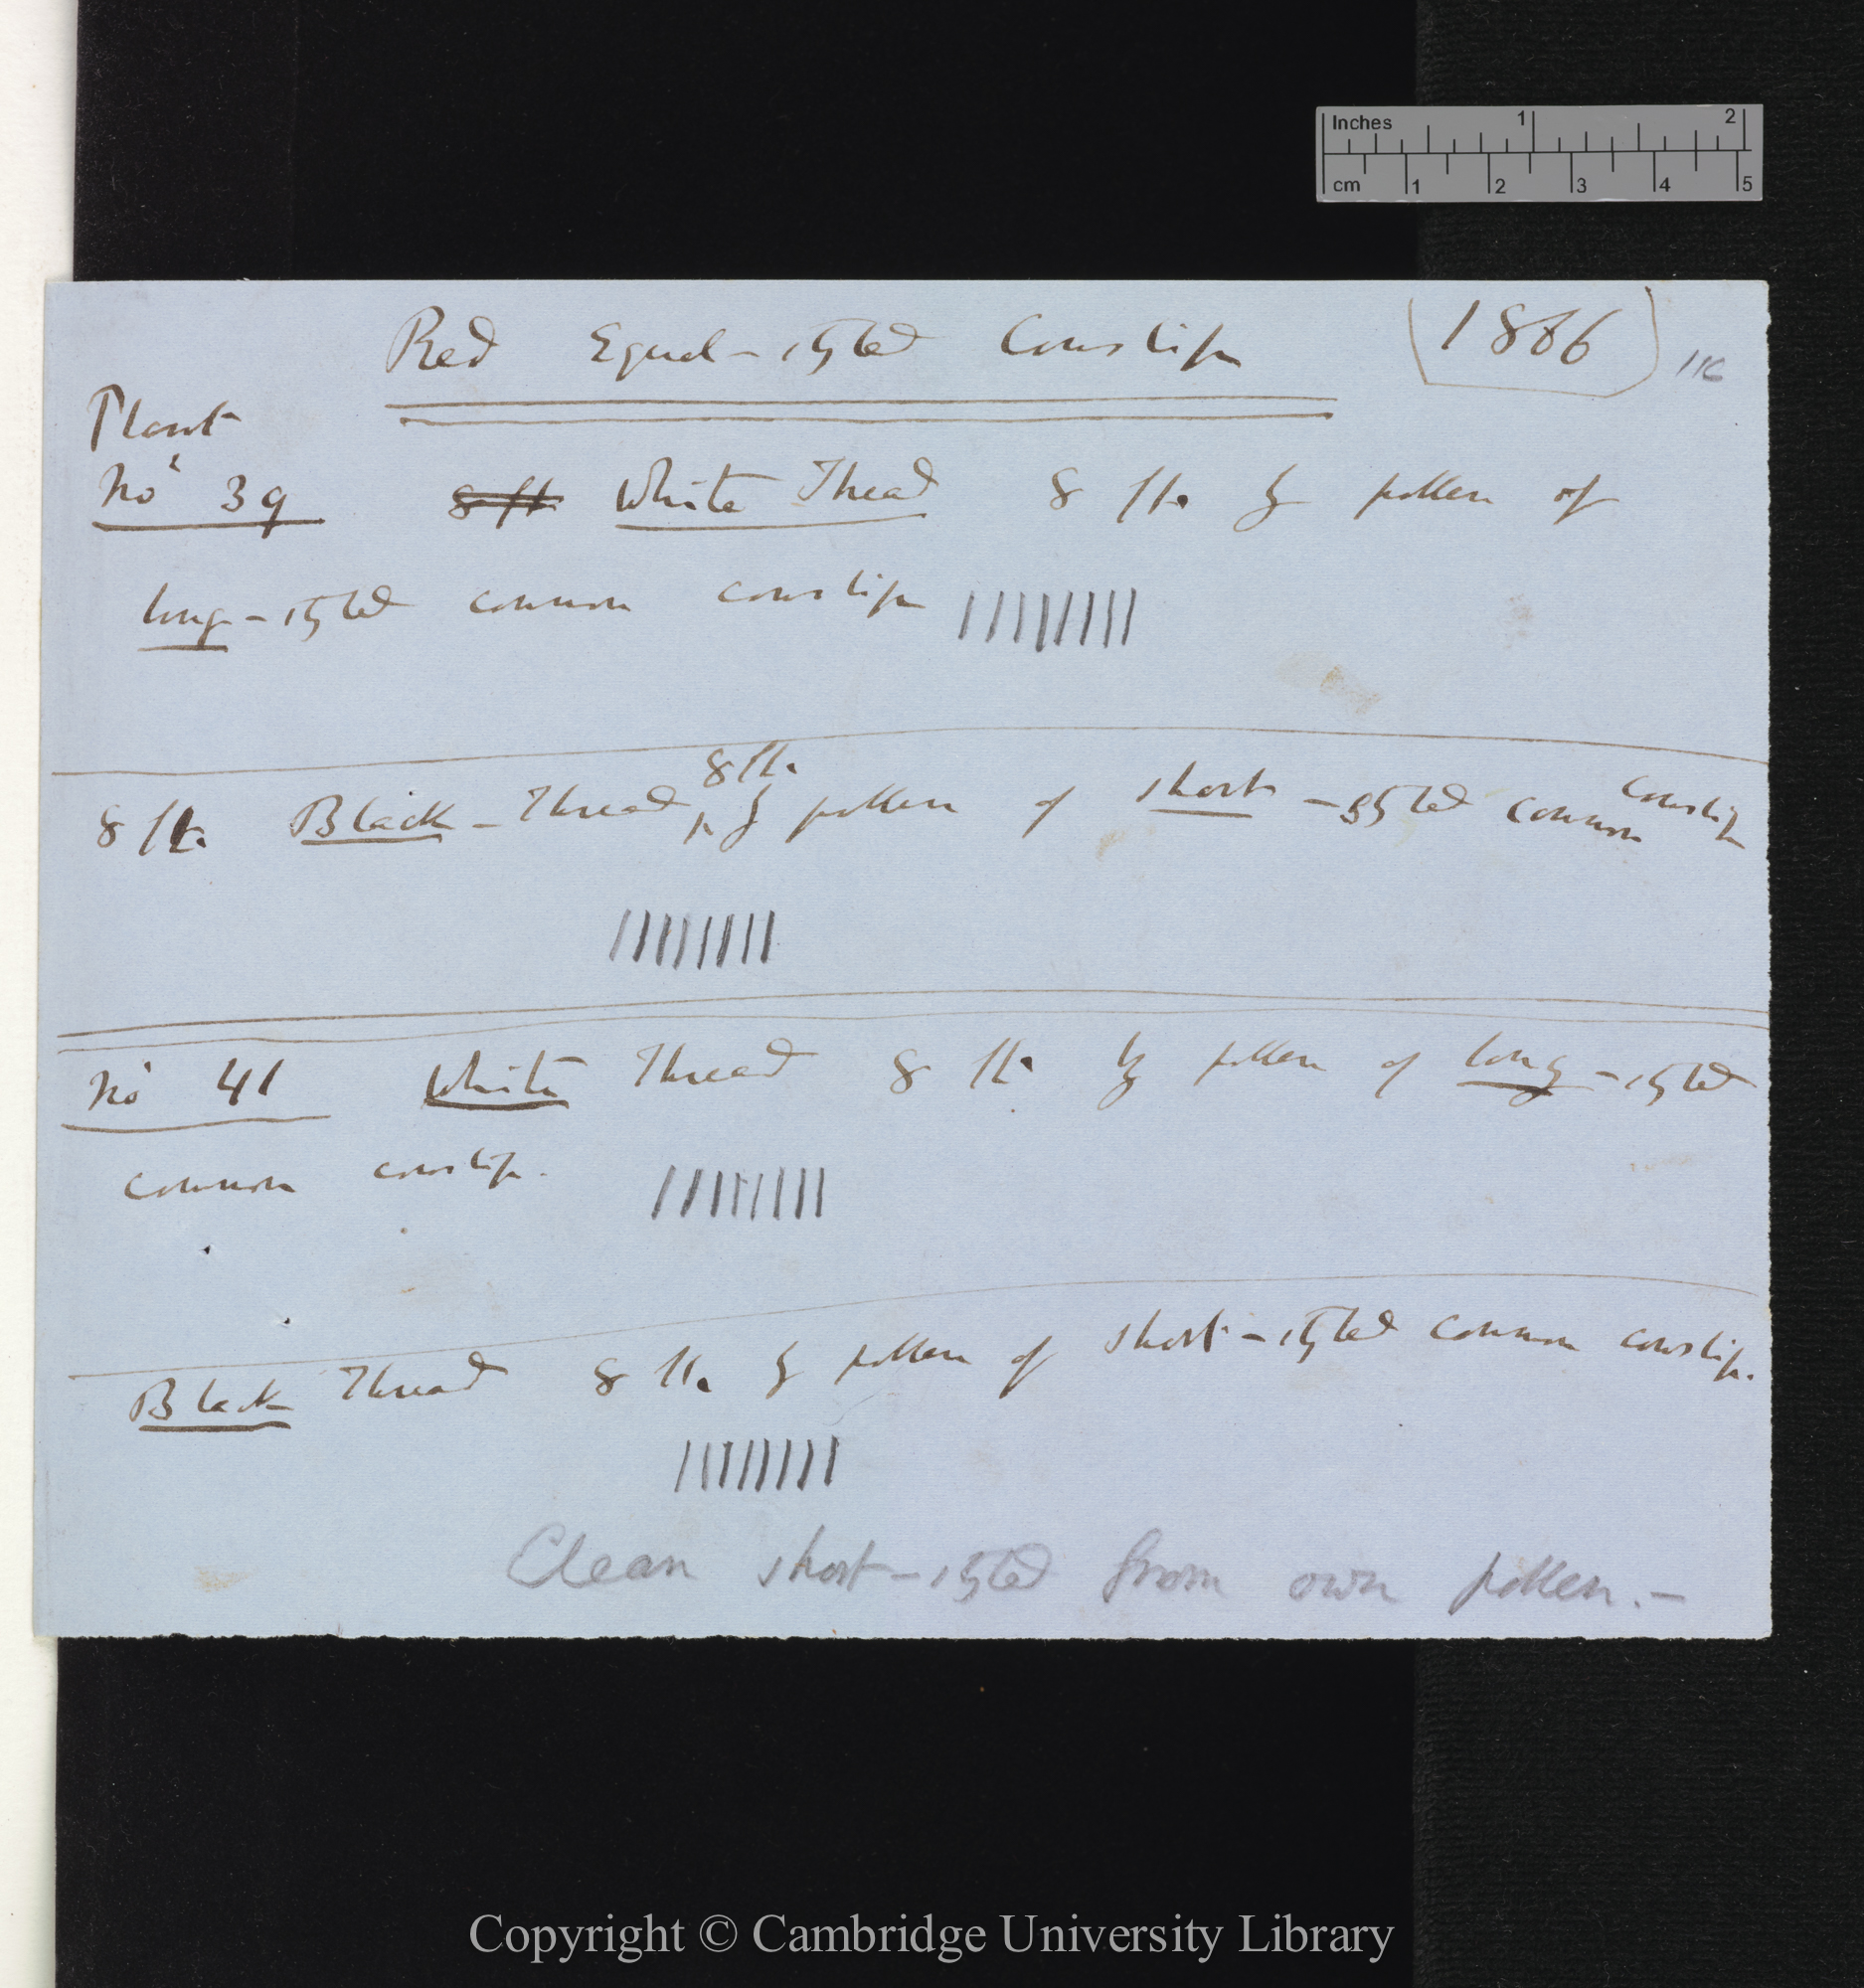 Inches 1 2
cm 1 2 3 4 5
Red Equal-styled Cowslip (1866) 116
Plant
No 39 8 fl White Thread 8 fl. by pollen of
long-styled common cowslip ||||||||
8 fl.
8 fl. Black-Thread, by pollen of short-styled common cowslip
||||||||
No 41 White Thread 8 fl. by pollen of long-styled
common cowslip. ||||||||
Black Thread 8 fl. by pollen of short-styled common cowslip.
||||||||
Clean short-styled from own pollen.—
Copyright © Cambridge University Library